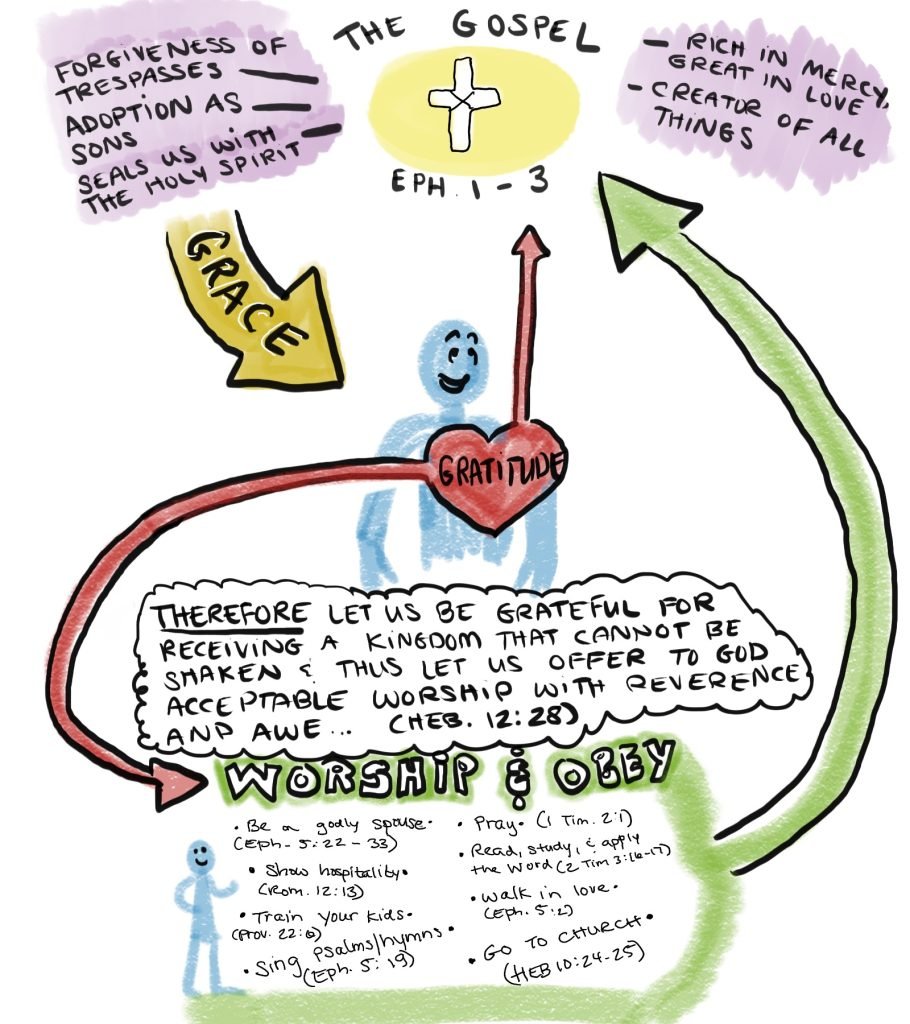 THE GOSPEL
FORGIVENESS OF
TRESPASSES —
ADOPTION AS —
SONS
SEALS US WITH —
THE HOLY SPIRIT
EPH. 1 - 3
- RICH IN MERCY,
GREAT IN LOVE
- CREATOR OF ALL
THINGS
GRACE
GRATITUDE
THEREFORE LET US BE GRATEFUL FOR
RECEIVING A KINGDOM THAT CANNOT BE
SHAKEN & THUS LET US OFFER TO GOD
ACCEPTABLE WORSHIP WITH REVERENCE
AND AWE... (HEB. 12:28)
WORSHIP & OBEY
• Be a godly spouse •
(Eph. 5:22-33)
• Show hospitality •
(Rom. 12:13)
• Train your kids •
(Prov. 22:6)
• Sing psalms/hymns •
(Eph. 5:19)
• Pray • (1 Tim. 2:1)
• Read, study, & apply
the Word (2 Tim 3:16-17)
• Walk in love •
(Eph. 5:2)
• GO TO CHURCH •
(HEB 10:24-25)